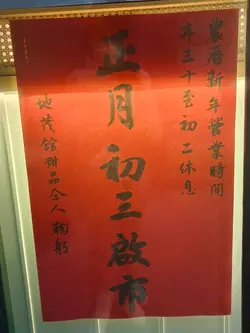 農曆新年營業時間
年三十至初二休息
正月初三啟市
地茂館甜品仝人 鞠躬